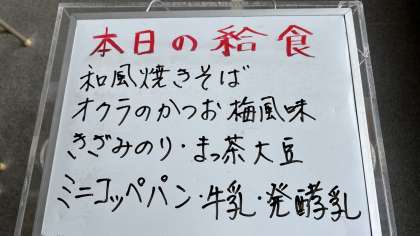 本日の給食
和風焼きそば
オクラのかつお梅風味
きざみのり・まっ茶大豆
ミニコッペパン・牛乳・発酵乳